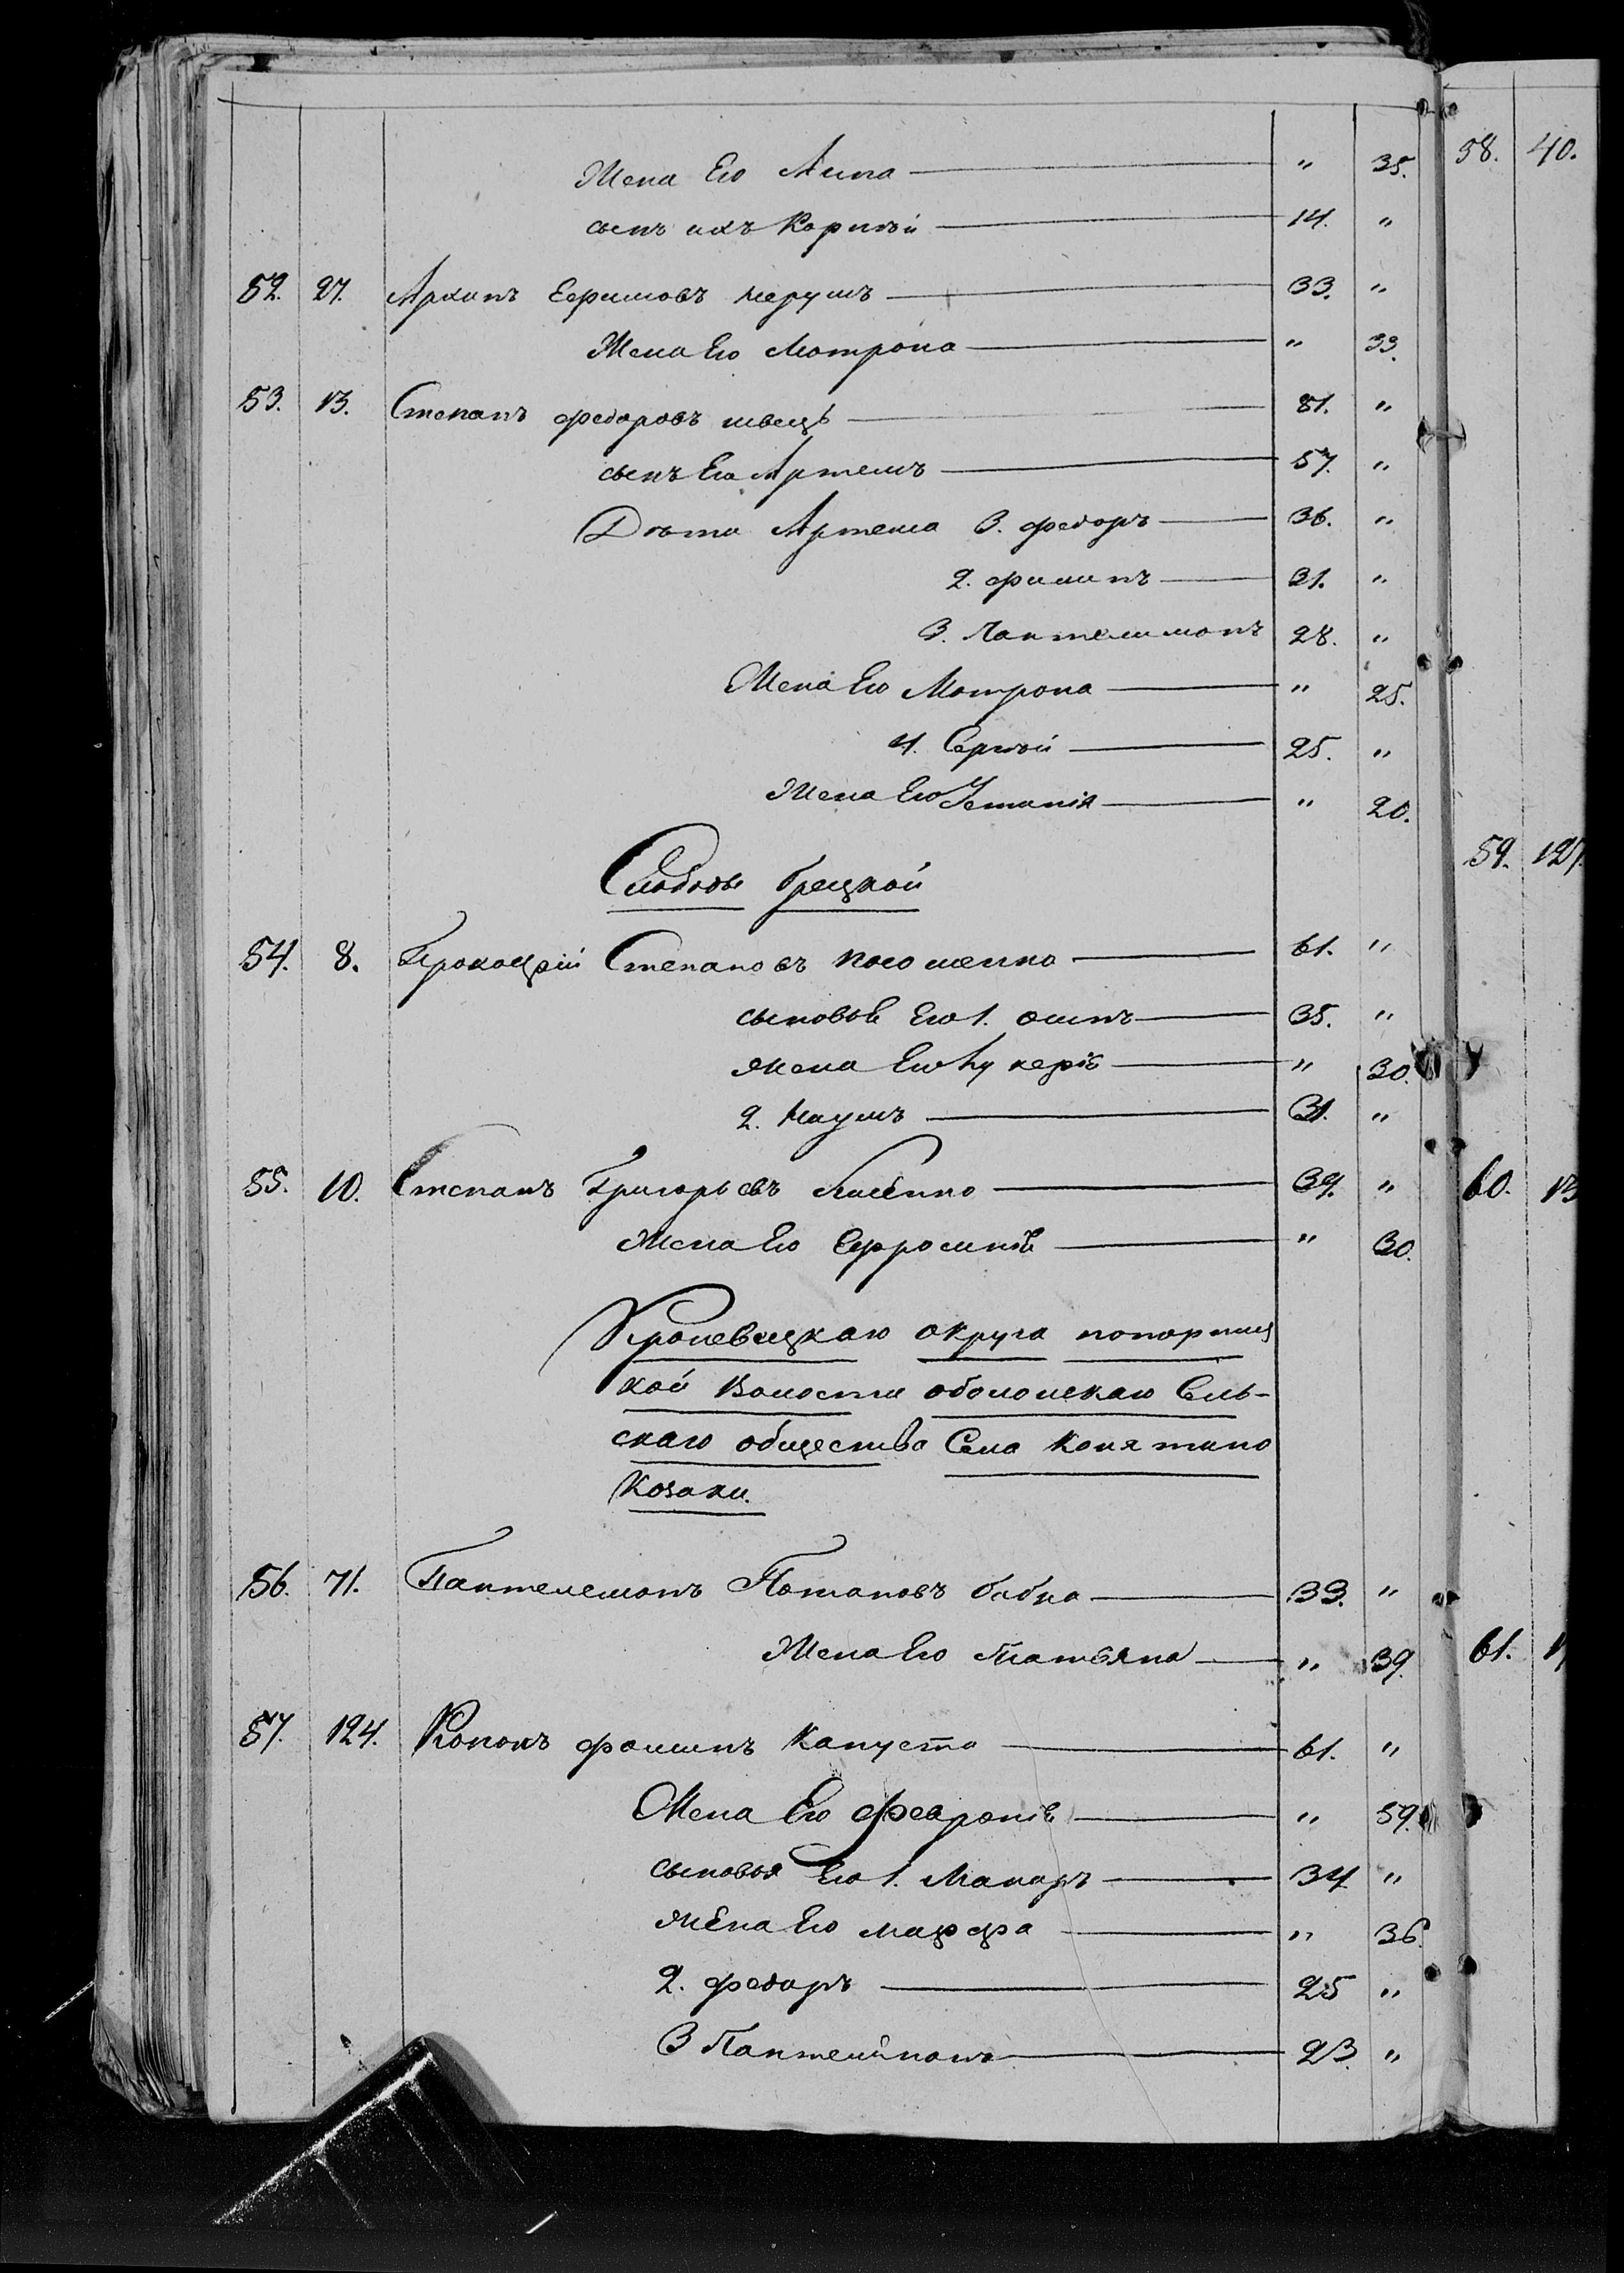 Жена Его Анна — " 35.
сынъ ихъ Корнѣй — 14. "
52. 27. Архипъ Ефимовъ — 33. "
Жена Его Мотрона — " 33.
53. 13. Степанъ Федоровъ швецъ — 81. "
сынъ Его Артемъ — 57. "
Дѣти Артема 3. Федоръ — 36. "
2. Филипъ — 31. "
3. Пантелимонъ 28. "
Жена Его Мотрона — " 25.
4. Сергѣй — 25. "
Жена Его — " 20.
Слободы Грецкой
54. 8. Прокофій Степановъ — 61. "
сыновья Его 1. Осипъ — 35. "
жена Его Лукерія — " 30.
2. Наумъ — 31. "
55. 10. Степанъ Григорьевъ — 39. "
Жена Его Ефросинія — " 30.
Кролевецкаго округа понорниц
кой Волости оболонскаго Сель-
скаго общества Села Конятино
Козаки.
56. 71. Пантелемонъ Потаповъ бабка — 33. "
Жена Его Татьяна — " 39.
57. 124. Кононъ фоминъ Капуста — 61. "
Жена Его Февронія — " 59.
сыновья Его 1. Макаръ — 34 "
жена Его марфа — " 36.
2. федоръ — 25 "
3 Пантелимонъ — 23. "
58. 40.
59. 127.
60. 13
61.